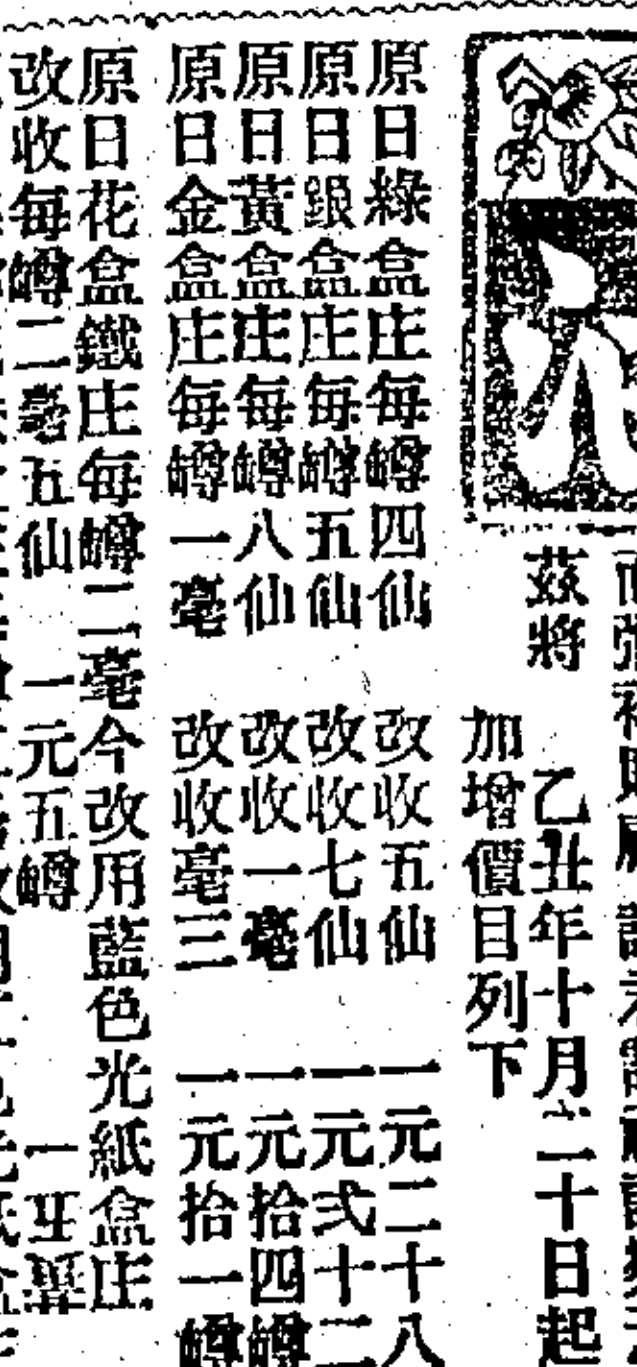 茲將　乙丑年十月二十日起
加增價目列下
原日綠盒庄每罇四仙　改收五仙　一元二十八
原日銀盒庄每罇五仙　改收七仙　一元弍十二
原日黃盒庄每罇八仙　改收一毫　一元拾四罇
原日金盒庄每罇一毫　改收毫三　一元拾一罇
原日花盒鐵庄每罇二毫今改用藍色光紙盒庄
改收每罇二毫五仙　一元五罇